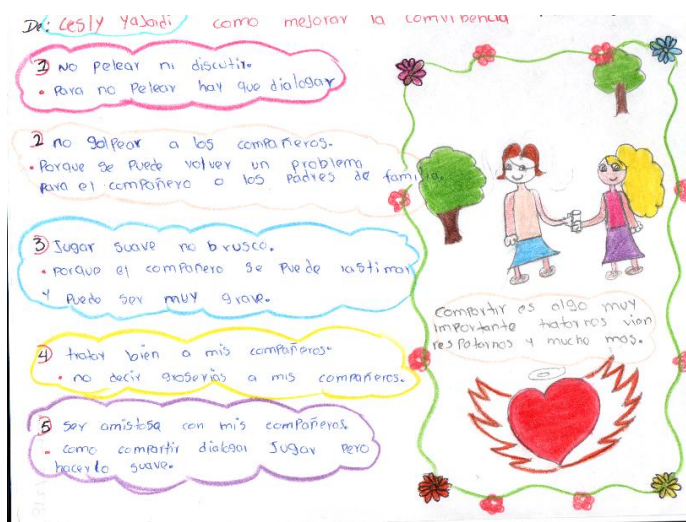 De: Lesly Yajaidi como mejorar la comvibencia
1 No pelear ni discutir.
• Para no Pelear hay que dialogar
2 no golpear a los compañeros.
• Porque se Puede volver un problema
para el compañero o los padres de familia.
3 Jugar suave no brusco.
• porque el compañero se Puede lastimar
Y Puede ser muy grave.
4 tratar bien a mis compañeros.
• no decir groserias a mis compañeros.
5 Ser amistosa con mis compañeros.
• como compartir dialogar Jugar Pero
hacerlo suave.
Compartir es algo muy
importante tratarnos vien
respetarnos y mucho mas.